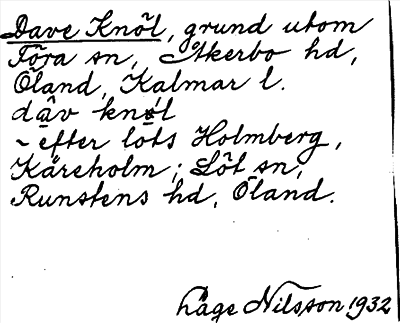 Dave Knöl, grund utom
Föra sn, Åkerbo hd,
Öland, Kalmar l.
dâv knøl
~ efter lots Holmberg,
Kåreholm; Löt sn,
Runstens hd, Öland.
håge Nilsson 1932